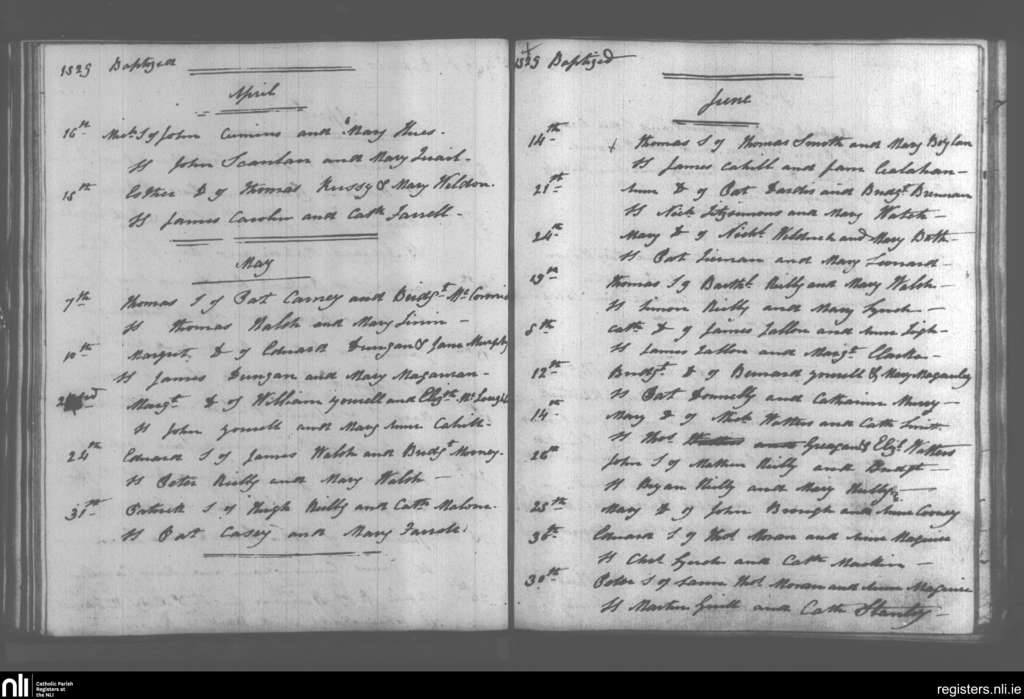 1829 Baptized
April
16th Mich. S of John Cumins and Mary Hues.
H John Scanlan and Mary Quail.
18th Esther D of Thomas Hussy & Mary Weldon.
H James Carolin and Cath Farrell.
May
7th Thomas S of Pat Carney and Bridgt
H Thomas Walsh and Mary
10th Margret D of Edward Dungan & Jane Murphy
H James Dungan and Mary
Margt D of William yourell and Elizth
H John yourell and Mary Anne Cahill.
24th Edward S of James Walsh and Bridgt
H Peter Reilly and Mary Walsh
31st Patrick S of Hugh Reilly and Cath Malone.
H Pat Casey and Mary
1829 Baptized
June
14th Thomas S of Thomas Smith and Mary Boylan
H James Cahill and Jane
21st Anne D of Pat Dardis and Bridgt Brennan
H Nich Fitzsimons and Mary Walsh
24th Mary D of Nichl and Mary
H Pat and Mary Leonard
19th Thomas S of Barthl Reilly and Mary Walsh
H Simon Reilly and Mary Lynch
8th Cath D of James Fallon and Anne
H James Fallon and Margt Clarke
12th Bridgt D of Bernard yourell & Mary
H Pat Donnelly and Catharine
14th Mary D of Mich Watters and Cath Smith
H Thos & Eliz. Watters
26th John S of Mathew Reilly and Bridgt
H Bryan Reilly and Mary Reilly
28th Mary D of John Brough and Anne Cooney
30th Edward S of Thos Moran and Anne Maguire
H Chrl Lynch and Cath
30th Peter S of Same Thos Moran and Anne Maguire
H Martin and Cath Stanley
nli
Catholic Parish
Registers at
the NLI
registers.nli.ie